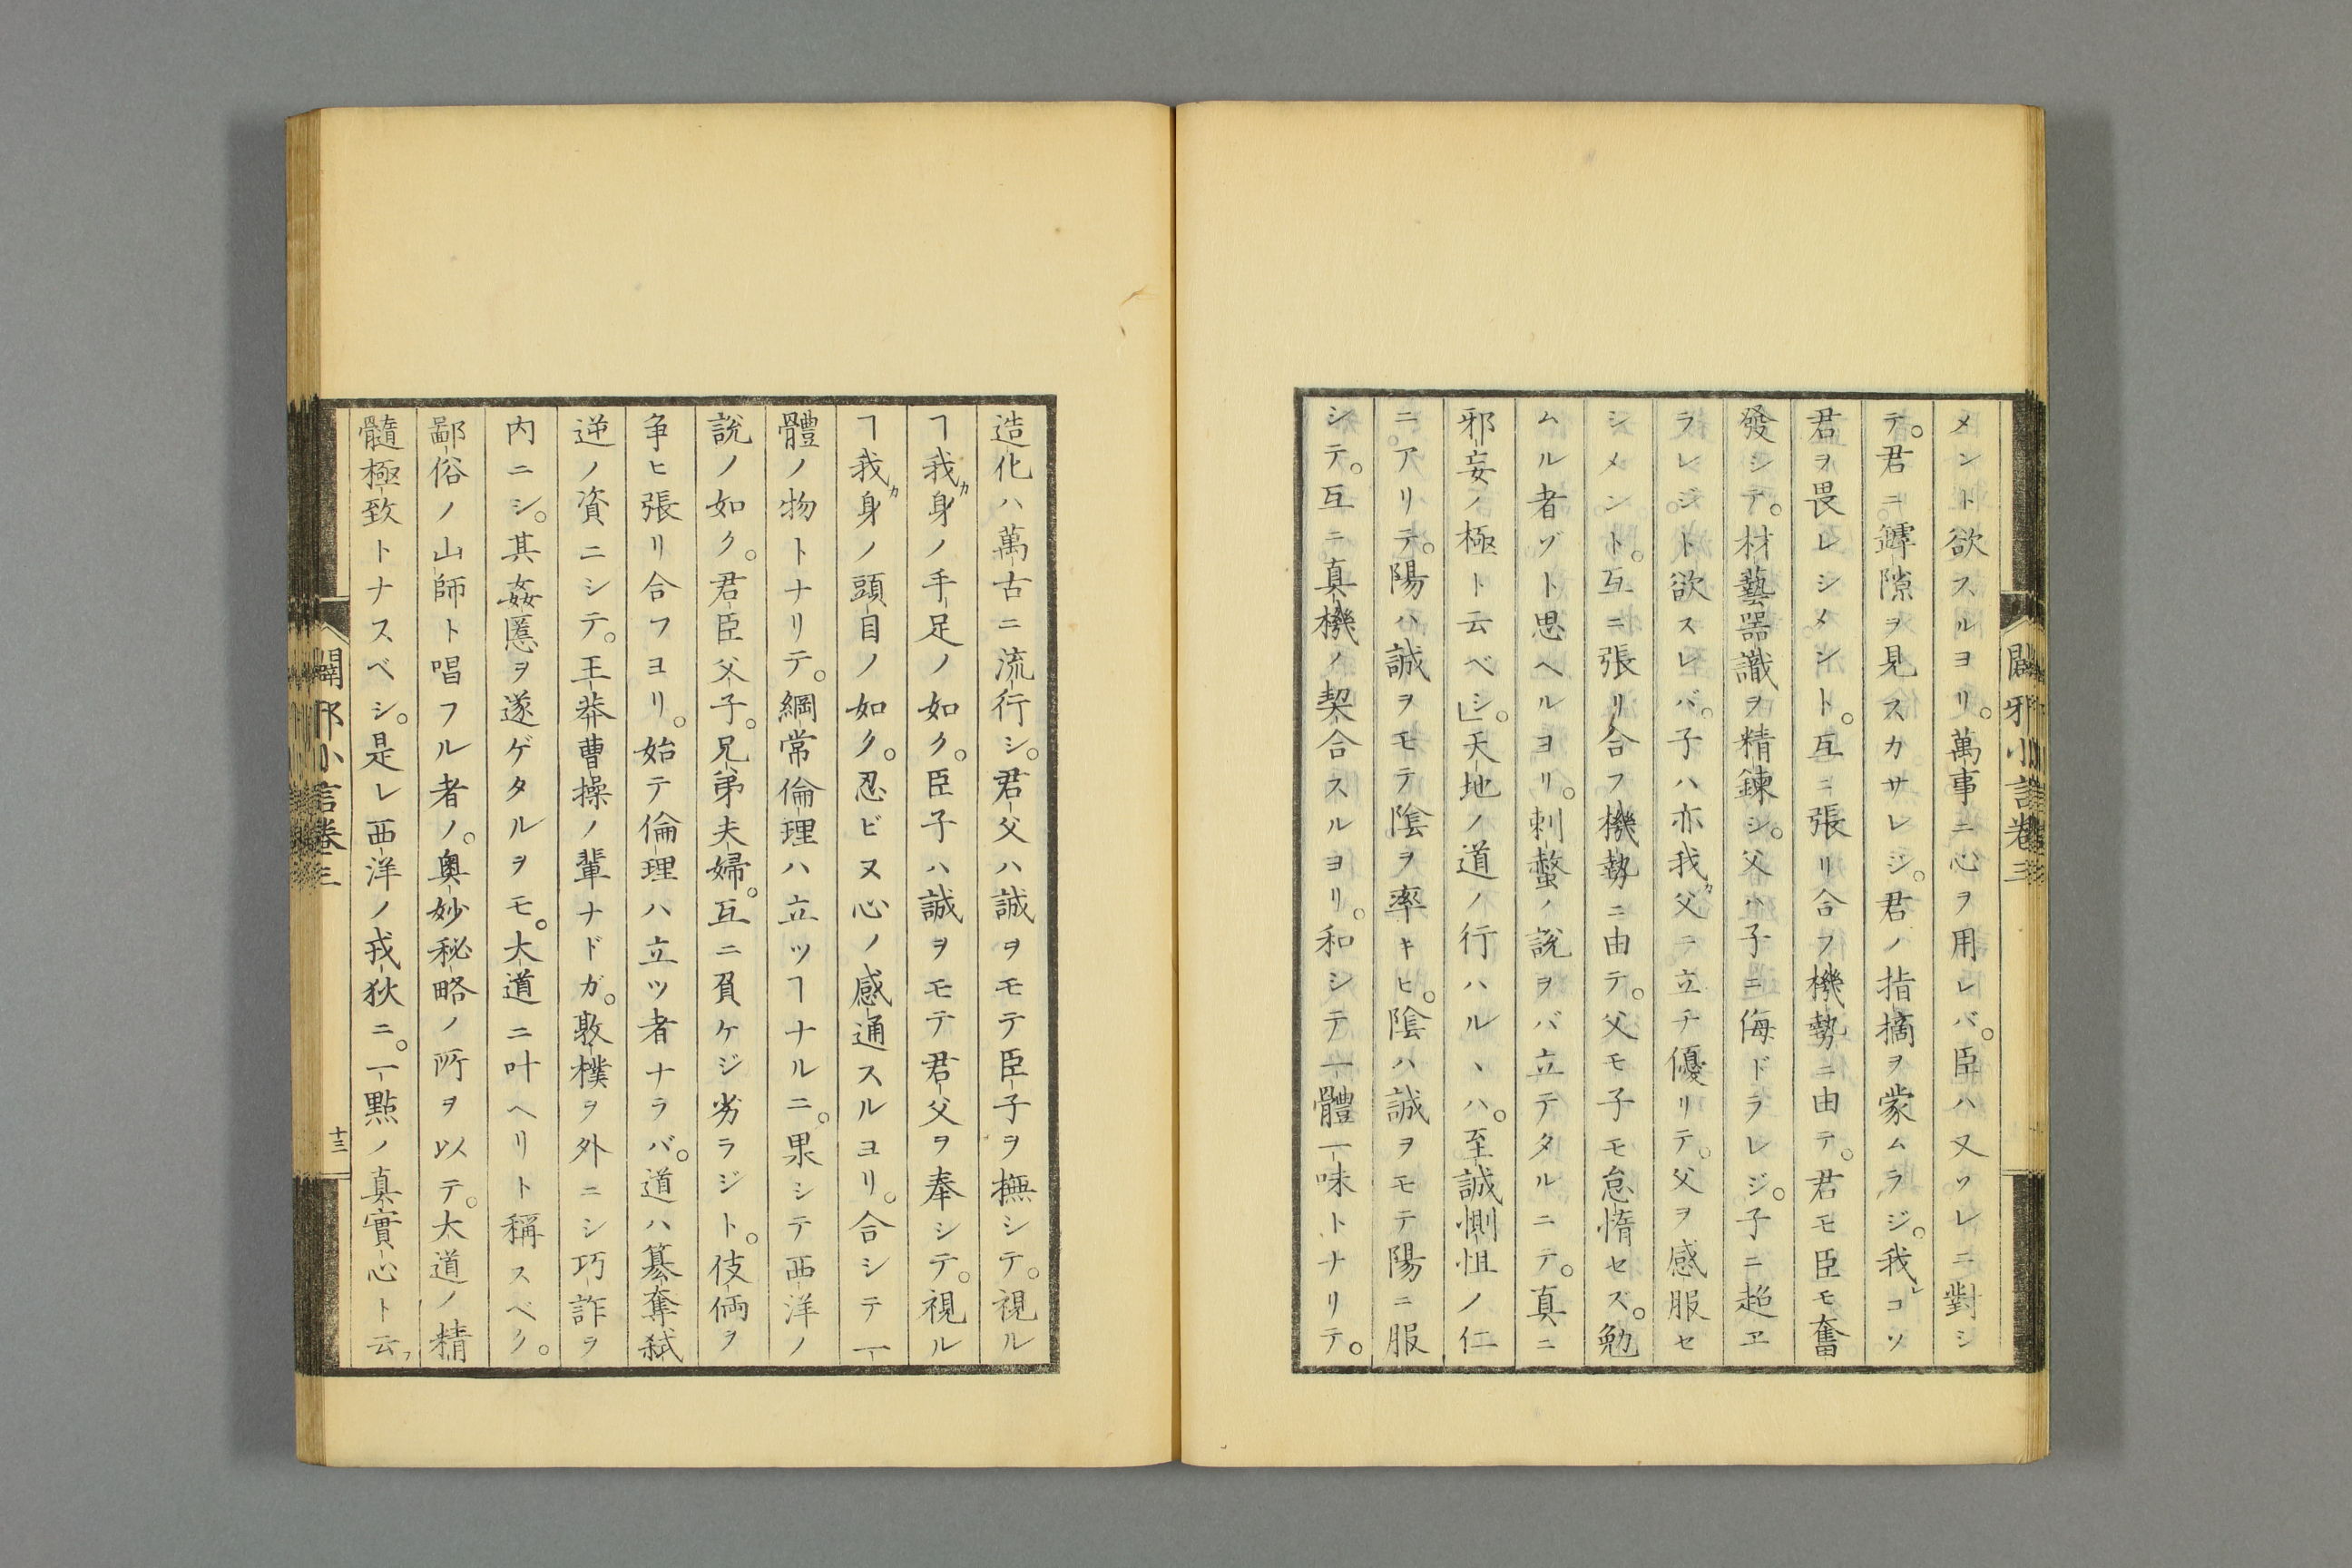 メント欲スルヨリ。萬事ニ心ヲ用レバ。臣ハ又ソレニ對シ
テ。君ニ罅隙ヲ見スカサレジ。君ノ指摘ヲ蒙ムラジ。我レコソ
君ヲ畏レシメント。互ニ張リ合フ機勢ニ由テ。君モ臣モ奮
發シテ。材藝器識ヲ精錬シ。父ハ子ニ侮ドラレジ。子ニ超ヱ
ラレジト欲スレバ。子ハ亦我カ父ニ立チ優リテ。父ヲ感服セ
シメント。互ニ張リ合フ機勢ニ由テ。父モ子モ怠惰セズ。勉
ムル者ゾト思ヘルヨリ。刺螫ノ說ヲバ立テタルニテ。真ニ
邪妄ノ極ト云ベシ。」天地ノ道ノ行ハルヽハ。至誠惻怛ノ仁
ニアリテ。陽ハ誠ヲモテ陰ヲ率キヒ。陰ハ誠ヲモテ陽ニ服
シテ。互ニ真機ノ契合スルヨリ。和シテ一體一味トナリテ。
闢邪小言卷三
造化ハ萬古ニ流行シ。君父ハ誠ヲモテ臣子ヲ撫シテ。視ル
ヿ我カ身ノ手足ノ如ク。臣子ハ誠ヲモテ君父ヲ奉シテ。視ル
ヿ我カ身ノ頭目ノ如ク。忍ビヌ心ノ感通スルヨリ。合シテ一
體ノ物トナリテ。綱常倫理ハ立ツヿナルニ。果シテ西洋ノ
說ノ如ク。君臣父子。兄弟夫婦。互ニ負ケジ劣ラジト。伎倆ヲ
争ヒ張リ合フヨリ。始テ倫理ハ立ツ者ナラバ。道ハ簒奪弑
逆ノ資ニシテ。王莽曹操ノ輩ナドガ。敦樸ヲ外ニシ巧詐ヲ
内ニシ。其姦慝ヲ遂ゲタルヲモ。大道ニ叶ヘリト稱スベク。
鄙俗ノ山師ト唱フル者ノ。奥妙秘略ノ所ヲ以テ。大道ノ精
髓極致トナスベシ。是レ西洋ノ戎狄ニ。一點ノ真實心ト云フ
闢邪小言卷三
十三